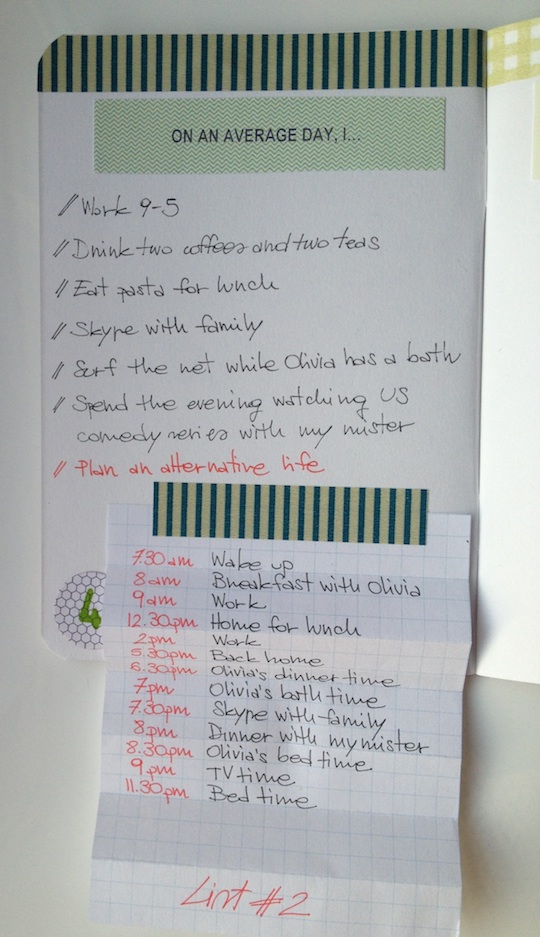 ON AN AVERAGE DAY, I...
// Work 9-5
// Drink two coffees and two teas
// Eat pasta for lunch
// Skype with family
// Surf the net while Olivia has a bath
// Spend the evening watching US
comedy series with my mister
// Plan an alternative life
4
7.30am Wake up
8am Breakfast with Olivia
9am Work
12.30pm Home for lunch
2pm Work
5.30pm Back home
6.30pm Olivia's dinner time
7pm Olivia's bath time
7.30pm Skype with family
8pm Dinner with my mister
8.30pm Olivia's bed time
9pm TV time
11.30pm Bed time
List #2